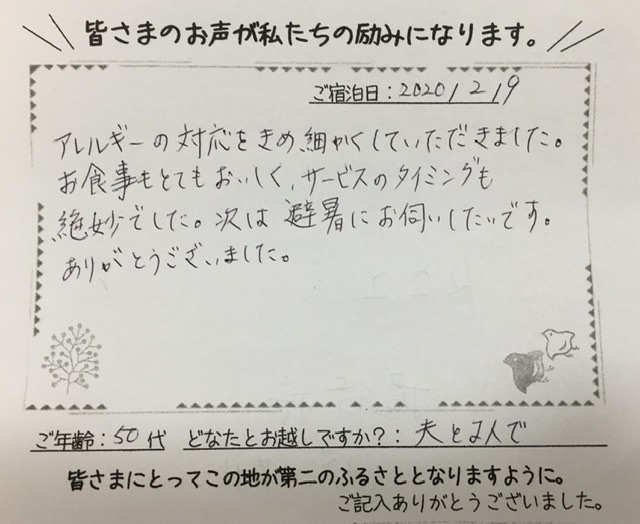 皆さまのお声が私たちの励みになります。
ご宿泊日:2020/2/9
アレルギーの対応をきめ細かくしていただきました。
お食事もとてもおいしく、サービスのタイミングも
絶妙でした。次は避暑にお伺いしたいです。
ありがとうございました。
ご年齢:50代 どなたとお越しですか?:夫と2人で
皆さまにとってこの地が第二のふるさととなりますように。
ご記入ありがとうございました。